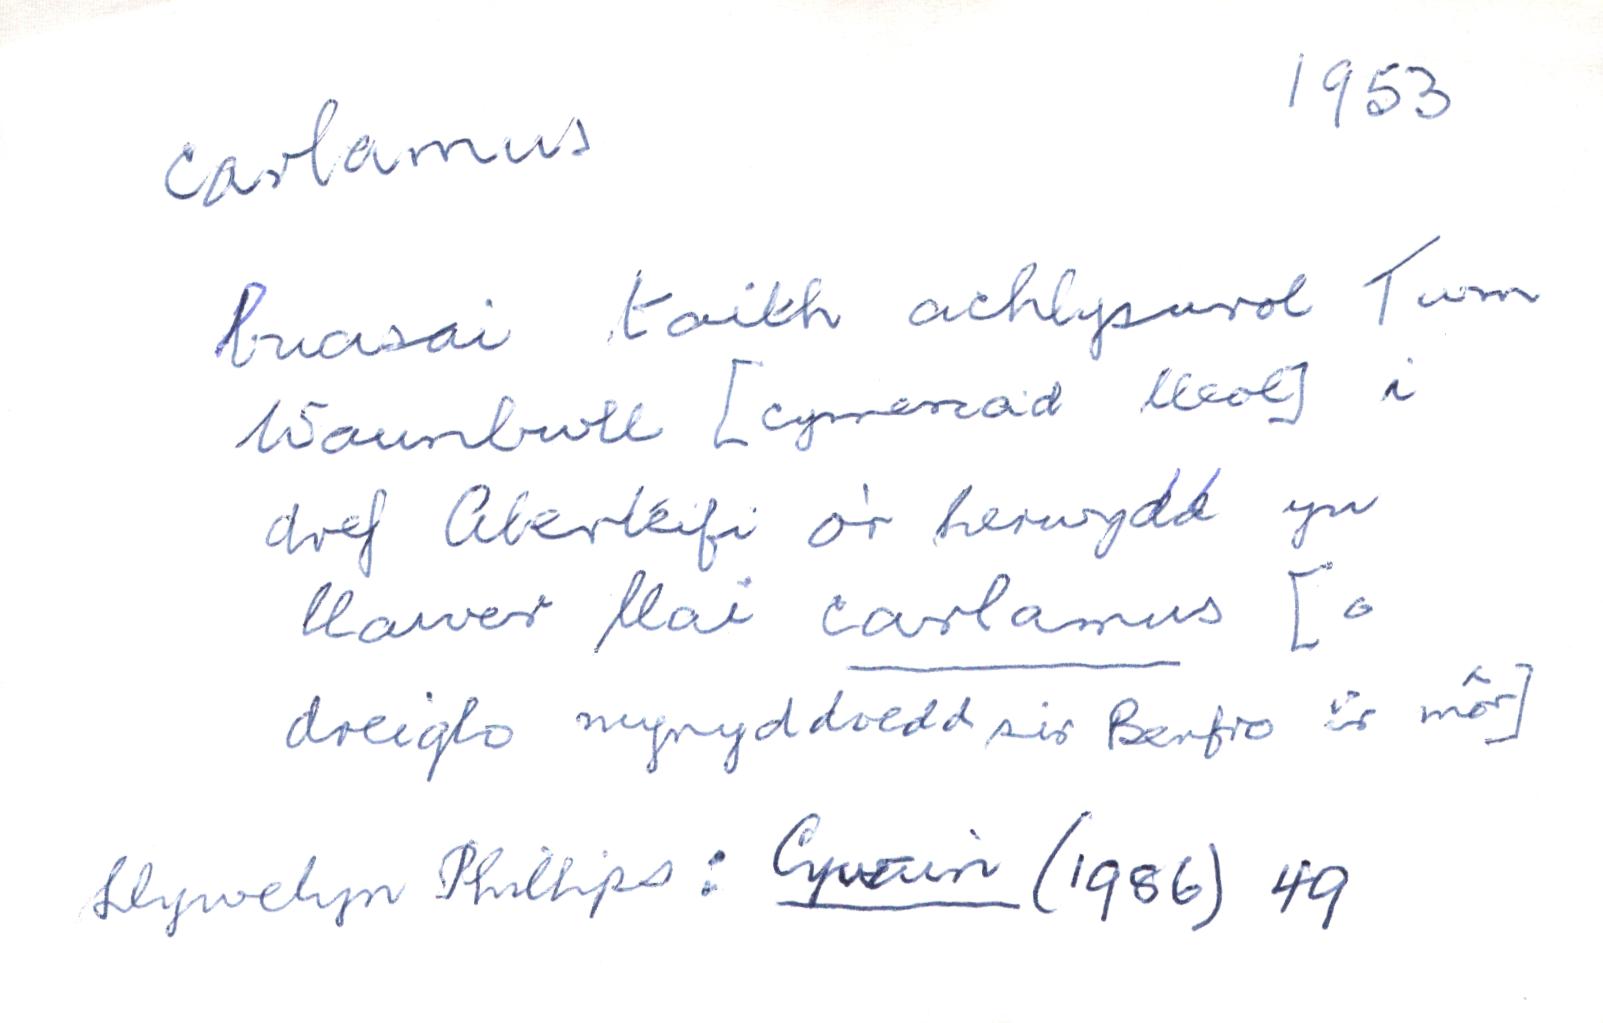 1953
carlamus
buasai taith achlysurol Twm
Waunbwll [cymeriad lleol] i
dref Aberteifi o'r herwydd yn
llawer llai carlamus [o
dreiglo mynyddoedd sir Benfro i'r môr]
Llywelyn Phillips: Cywain (1986) 49